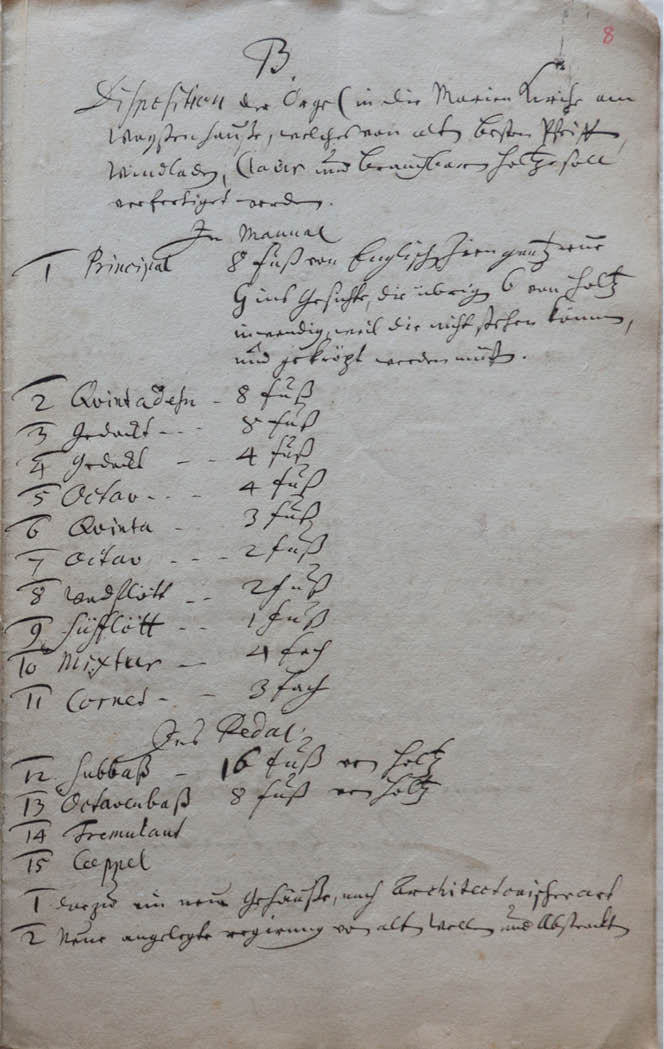 8
B
Disposition der Orgel in die Marien Kirche am
Waysenhauße, welches von alten besten Pfeiffen,
Windladen, Clavir und brauchbaren Holtze soll
verfertiget werden.
In Manual
1 Principal 8 fuß von Englischen Zien gantz neue
G ins Gesichte, die übrigen 6 von Holtz
inwendig, weil die nicht stehen können,
und gekröpt werden müßen.
2 Qvintadehn - 8 fuß
3 Gedackt - - - 8 fuß
4 Gedackt - - 4 fuß
5 Octav - - - 4 fuß
6 Qvinta - 3 fuß
7 Octav - - - 2 fuß
8 Waldflött - - 2 fuß
9 Süfflött - - 1 fuß
10 Mixtur - 4 fach
11 Cornet - - 3 fach
Ins Pedal.
12 Subbaß - 16 fuß von Holtz
13 Octavenbaß 8 fuß von Holtz
14 Tremulant
15 Coppel
1 darzu ein neue Gehäuße, nach Architectonischer art
2 Neue angelegte regierung von alten Wellen und Abstrackten